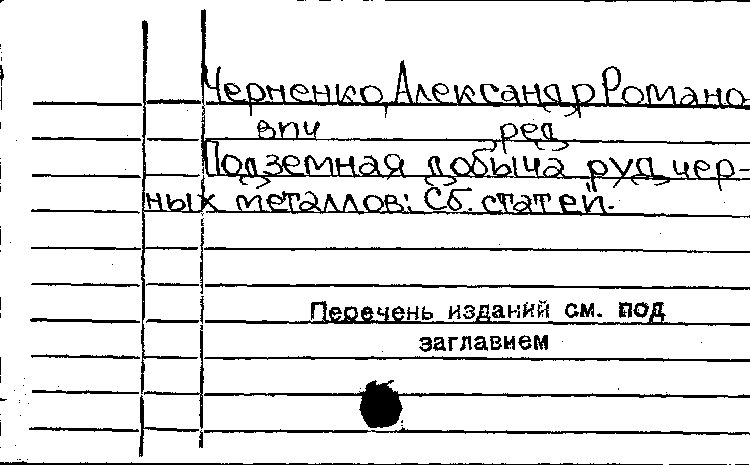 Черненко, Александр Романо
вич ред
Подземная добыча руд чер-
ных металлов: Сб. статей.
Перечень изданий см. под
заглавием